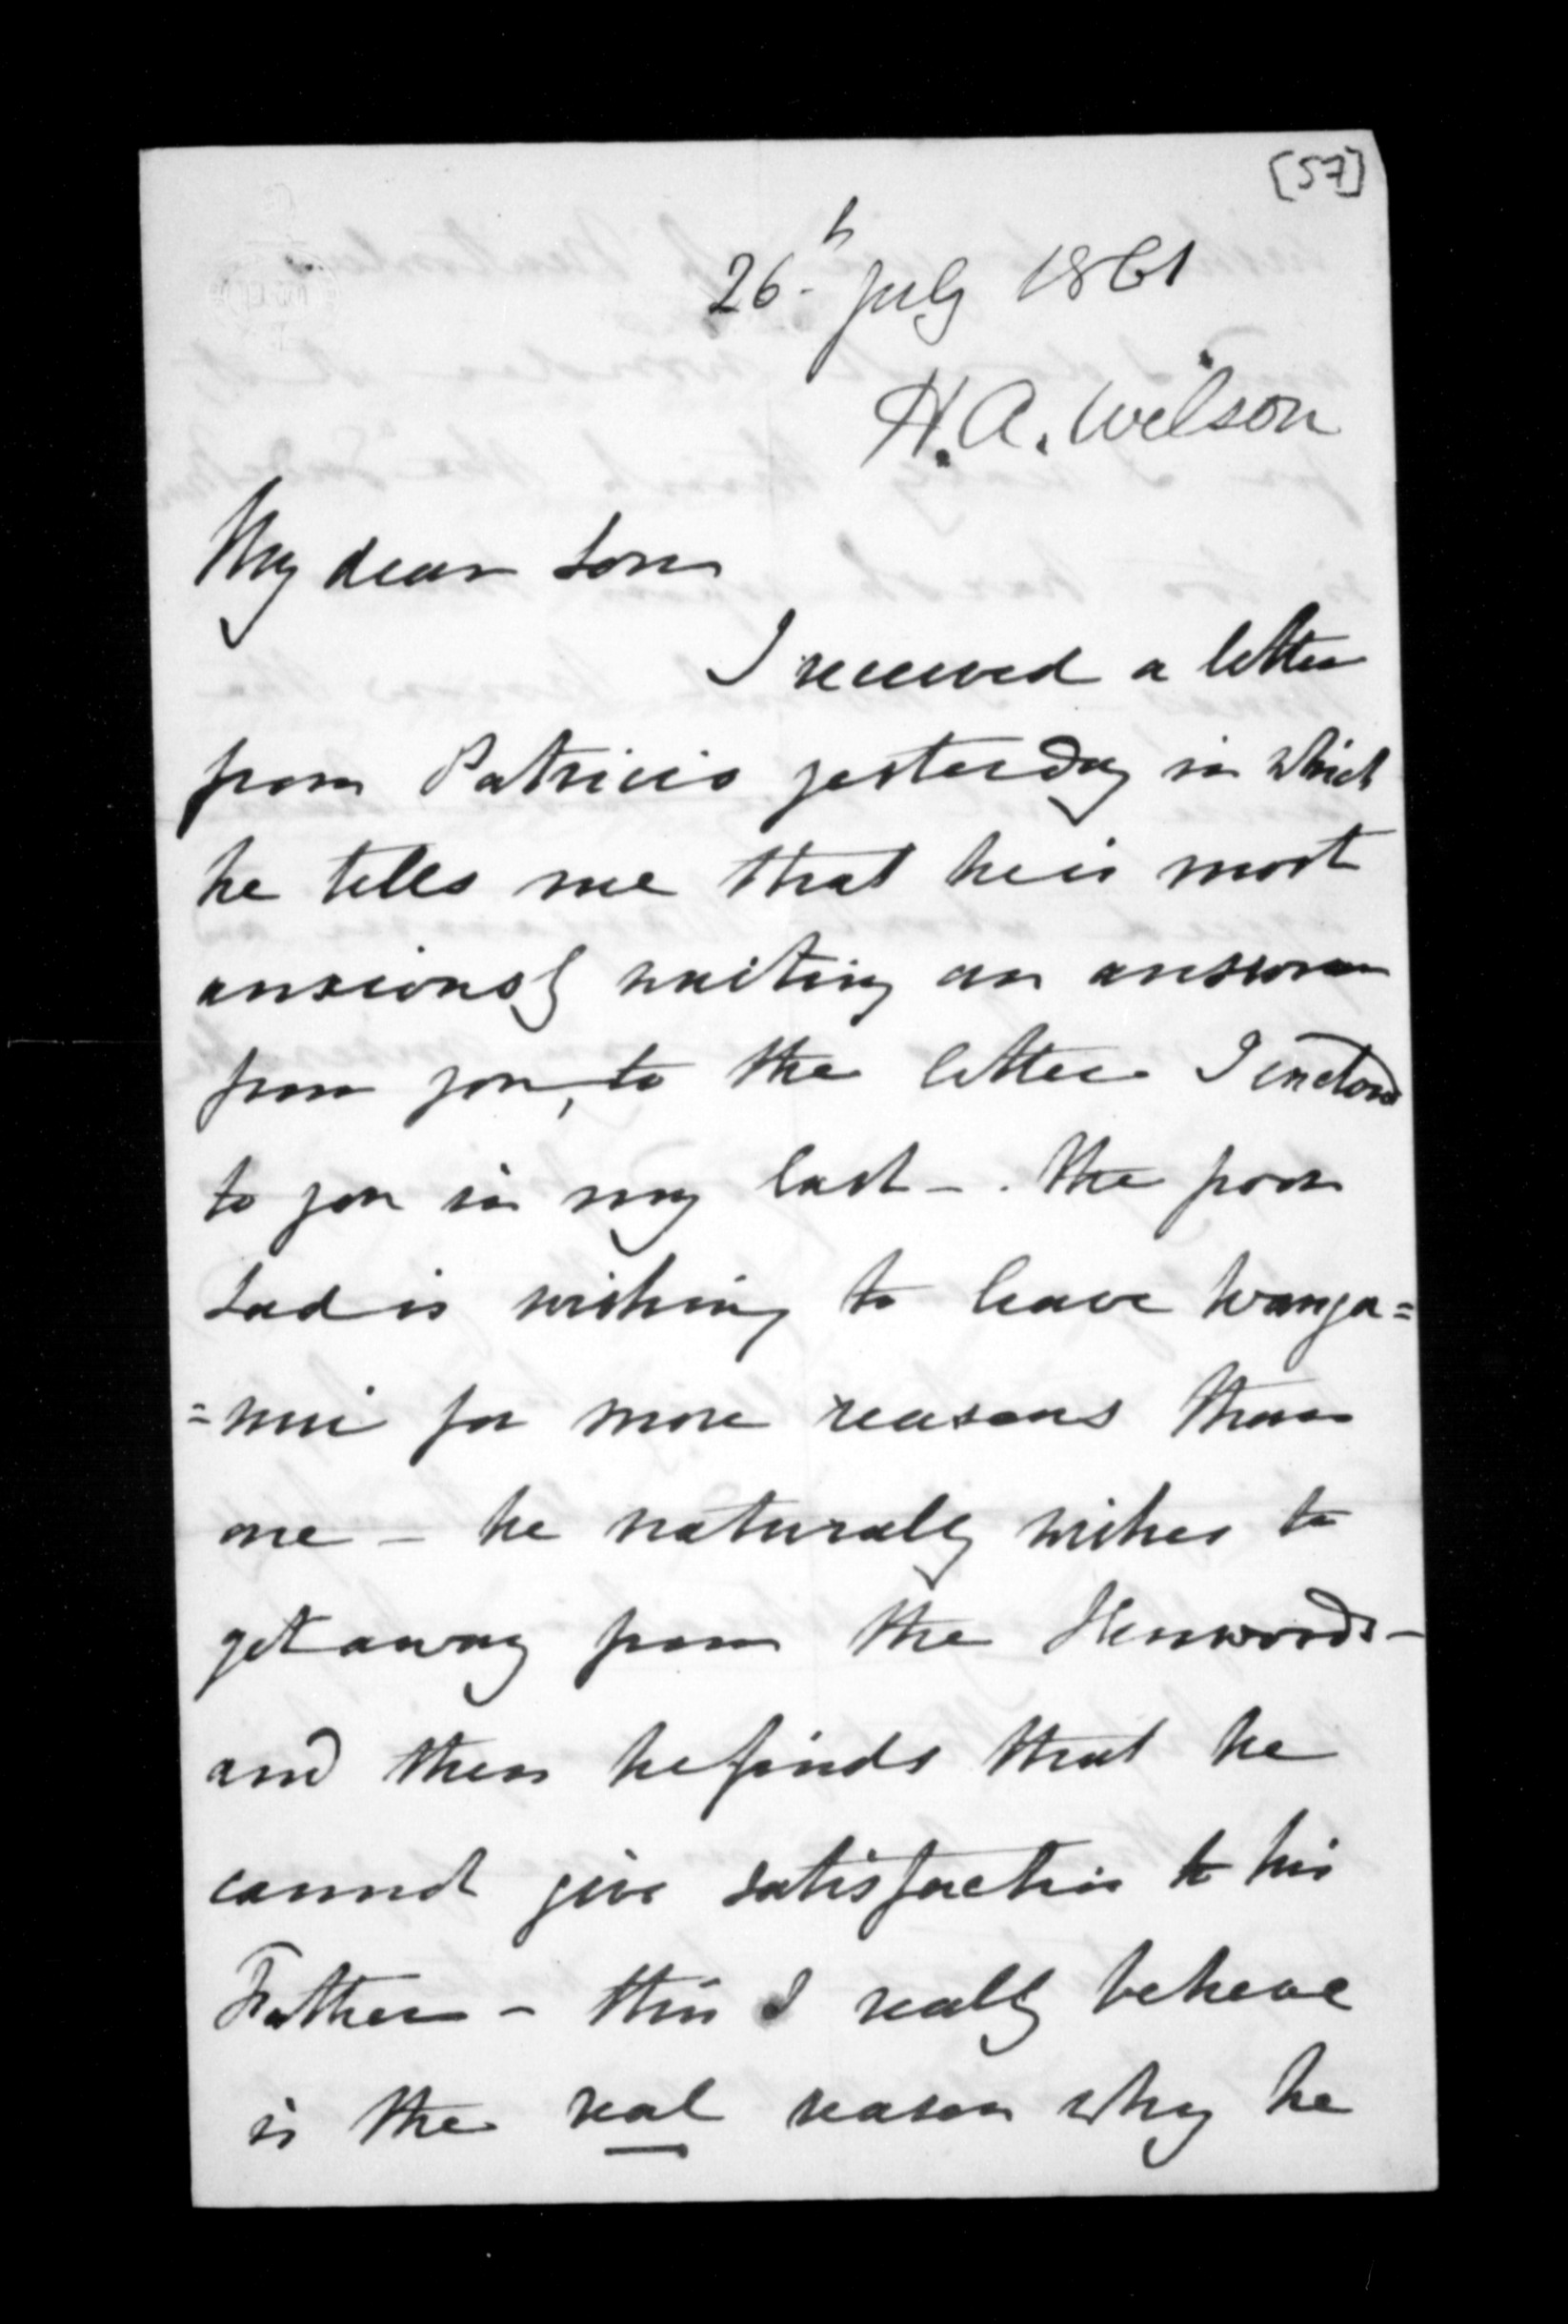 [57]
26th July 1861
H.A. Wilson
My dear Son
I received a letter
from Patricio yesterday in which
he tells me that he is most
anxiously waiting an answer
from you, to the letter I enclosed
to you in my last - . The poor
Lad is wishing to leave Wanga=
=nui for more reasons than
one - he naturally wishes to
get away from the Henwoods -
and then he finds that he
cannot give satisfaction to his
Father - this I really believe
is the real reason why he